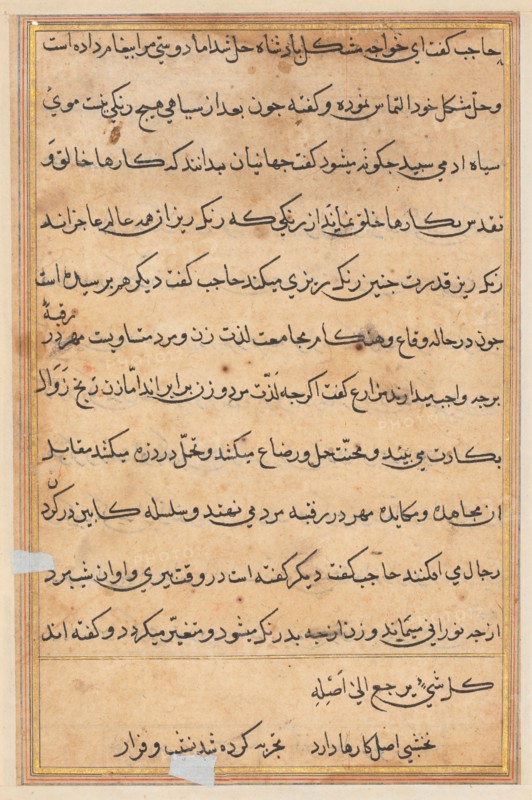 حاجب کفت ای خواجه مشکل بادشاه حل شد اما دوستی مرا بیغام داده است
و حل مشکل خود التماس نموده و کفته جون بعد از سیاهی هیج رنکی نیست موی
سیاه ادمی سبید جکونه میشود کفت جهانیان بدانند که کارها خالق و
تقدس بکارها خلق نمی‌ماند از رنکی که رنکریز از همه عالم عاجز اند
رنکریز قدرت جنین رنکریزی میکند حاجب کفت دیکر هم برسیده است
جون در حاله وقاع و هنکام مجامعت لذت زن و مرد متساویست مهر در رقبهٔ
برجه واجب میدارند مزارع کفت اکرجه لذّت مرد و زن برابر اند امّا زن رنج زوال
بکارت می بیند و محنّت حمل و رضاع میکند و تحمّل درد زه میکند مقابله
ان مجاهده و مکابده مهر در رقبه مرد می نهند و سلسله کابین در کردن
رجال می افکنند حاجب کفت دیکر کفته است در وقت بیری و اوان شیب مرد
ازجه نورانی میماند و زن ازجه بد رنک میشود و متغیّر میکردد و کفته اند
کل شیءٍ یرجع الیٰ اَصْلِهِ
نخشبی اصل کارها دارد تجربه کرده شد نشیب و فراز